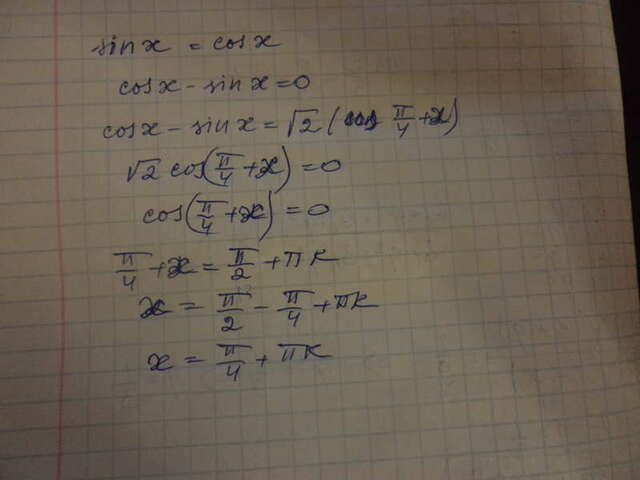 sin x = cos x
cos x - sin x = 0
cos x - sin x = √2 (cos π/4 + x)
√2 cos(π/4 + x) = 0
cos(π/4 + x) = 0
π/4 + x = π/2 + πk
x = π/2 - π/4 + πk
x = π/4 + πk